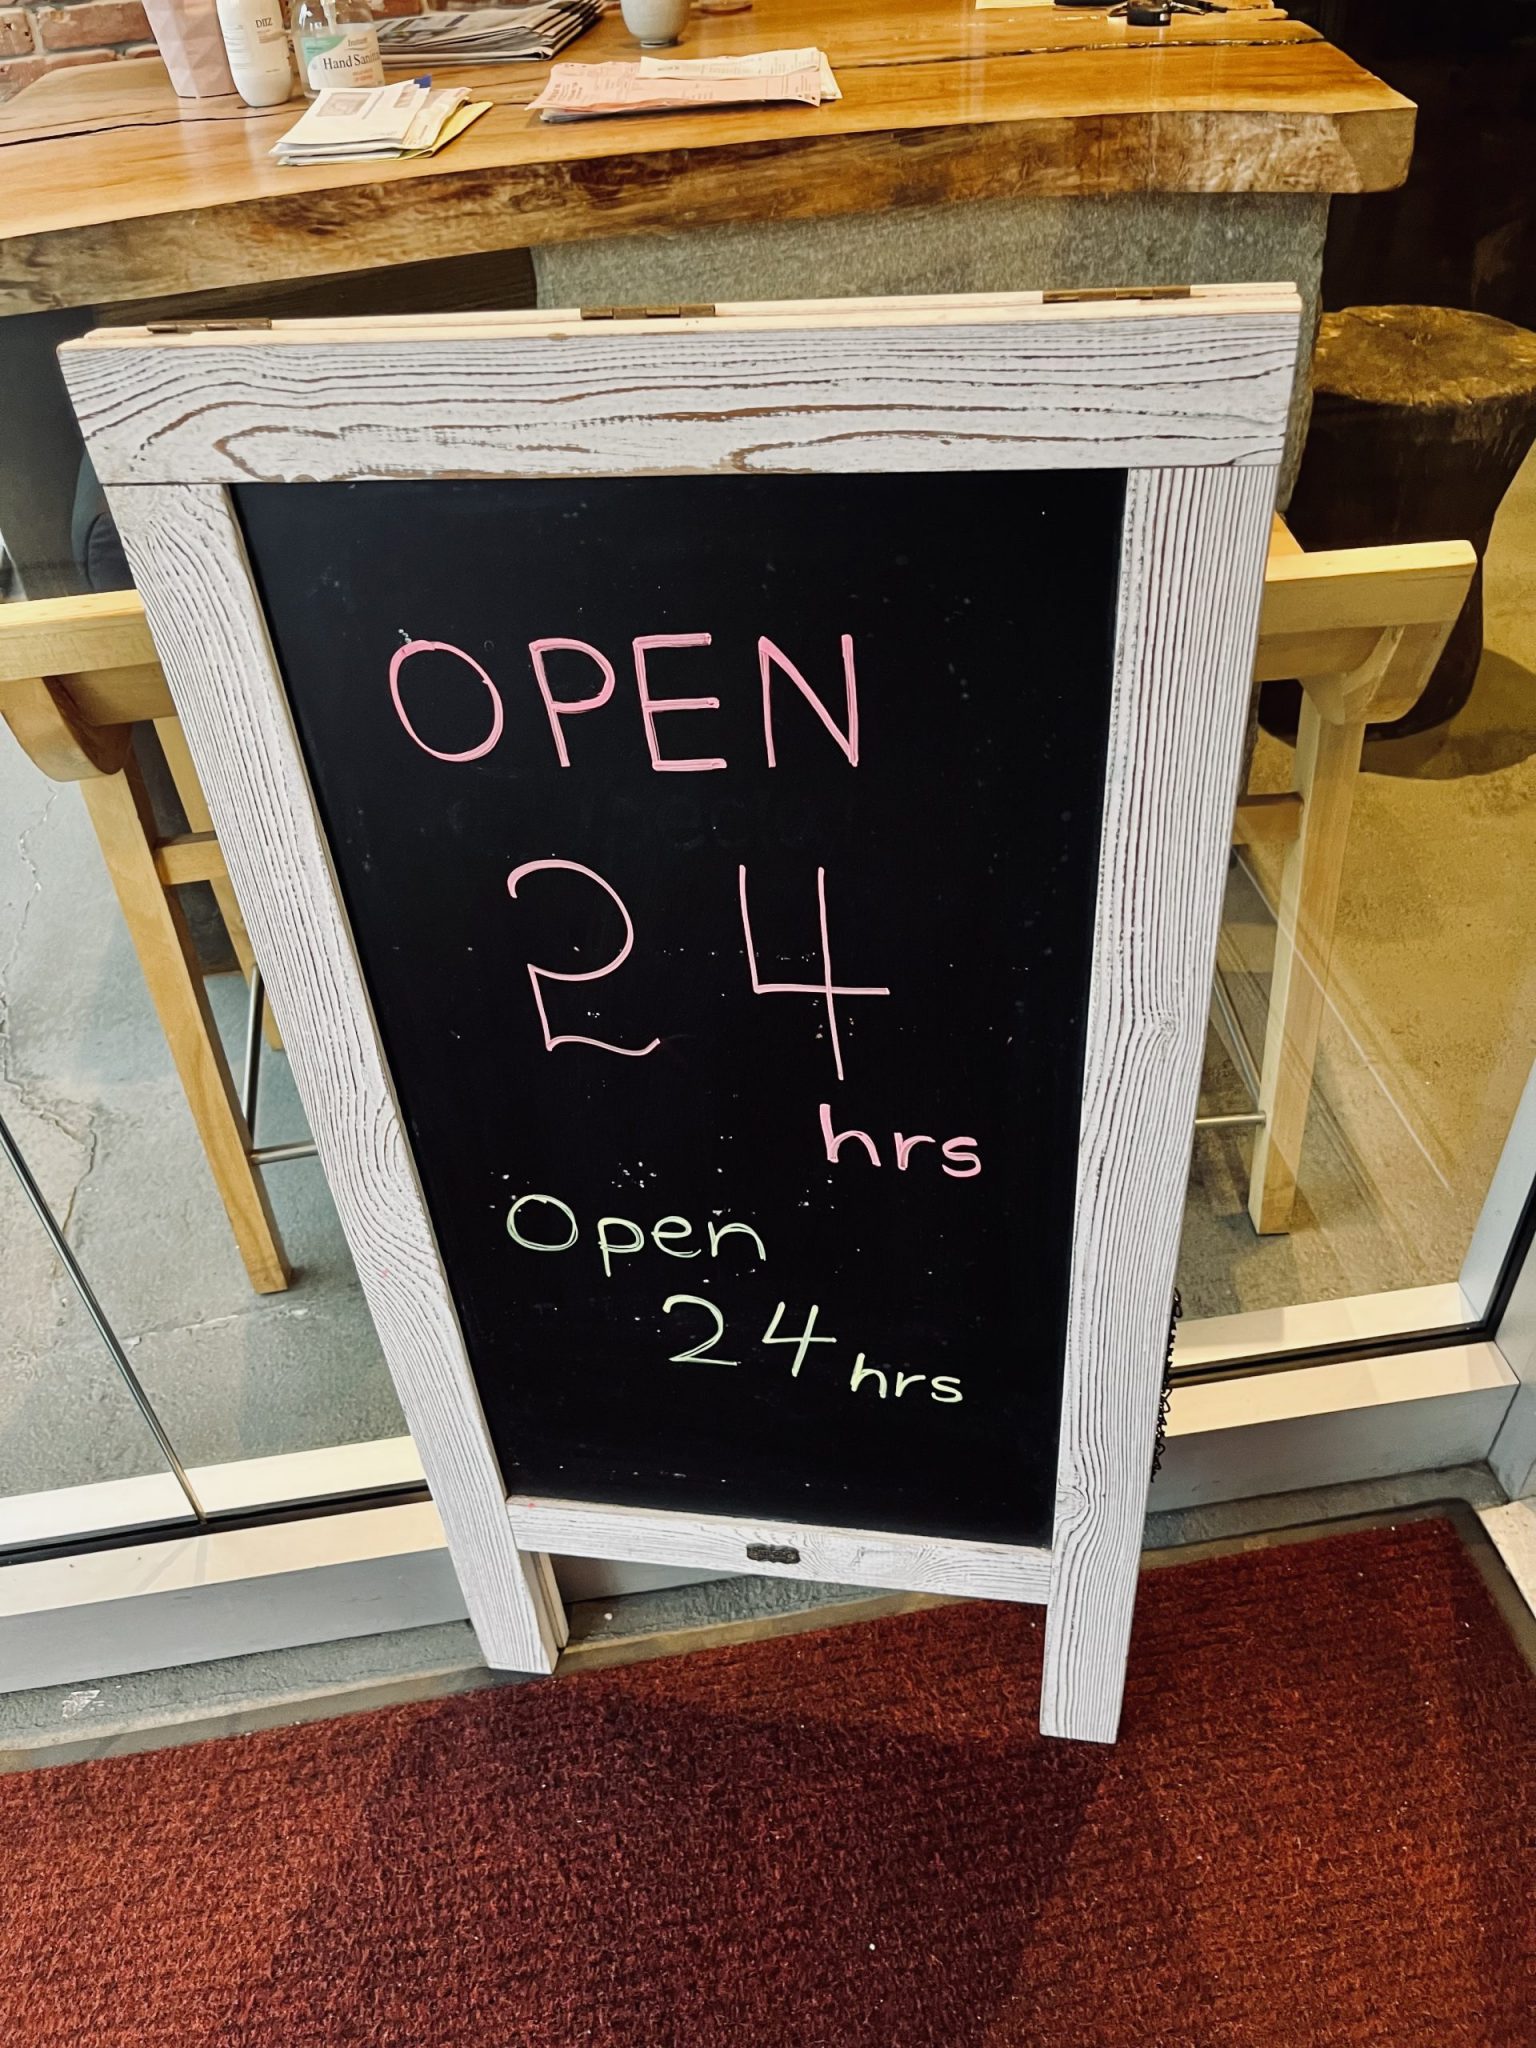 DIIZ
Hand Sani
OPEN
24
hrs
Open
24 hrs